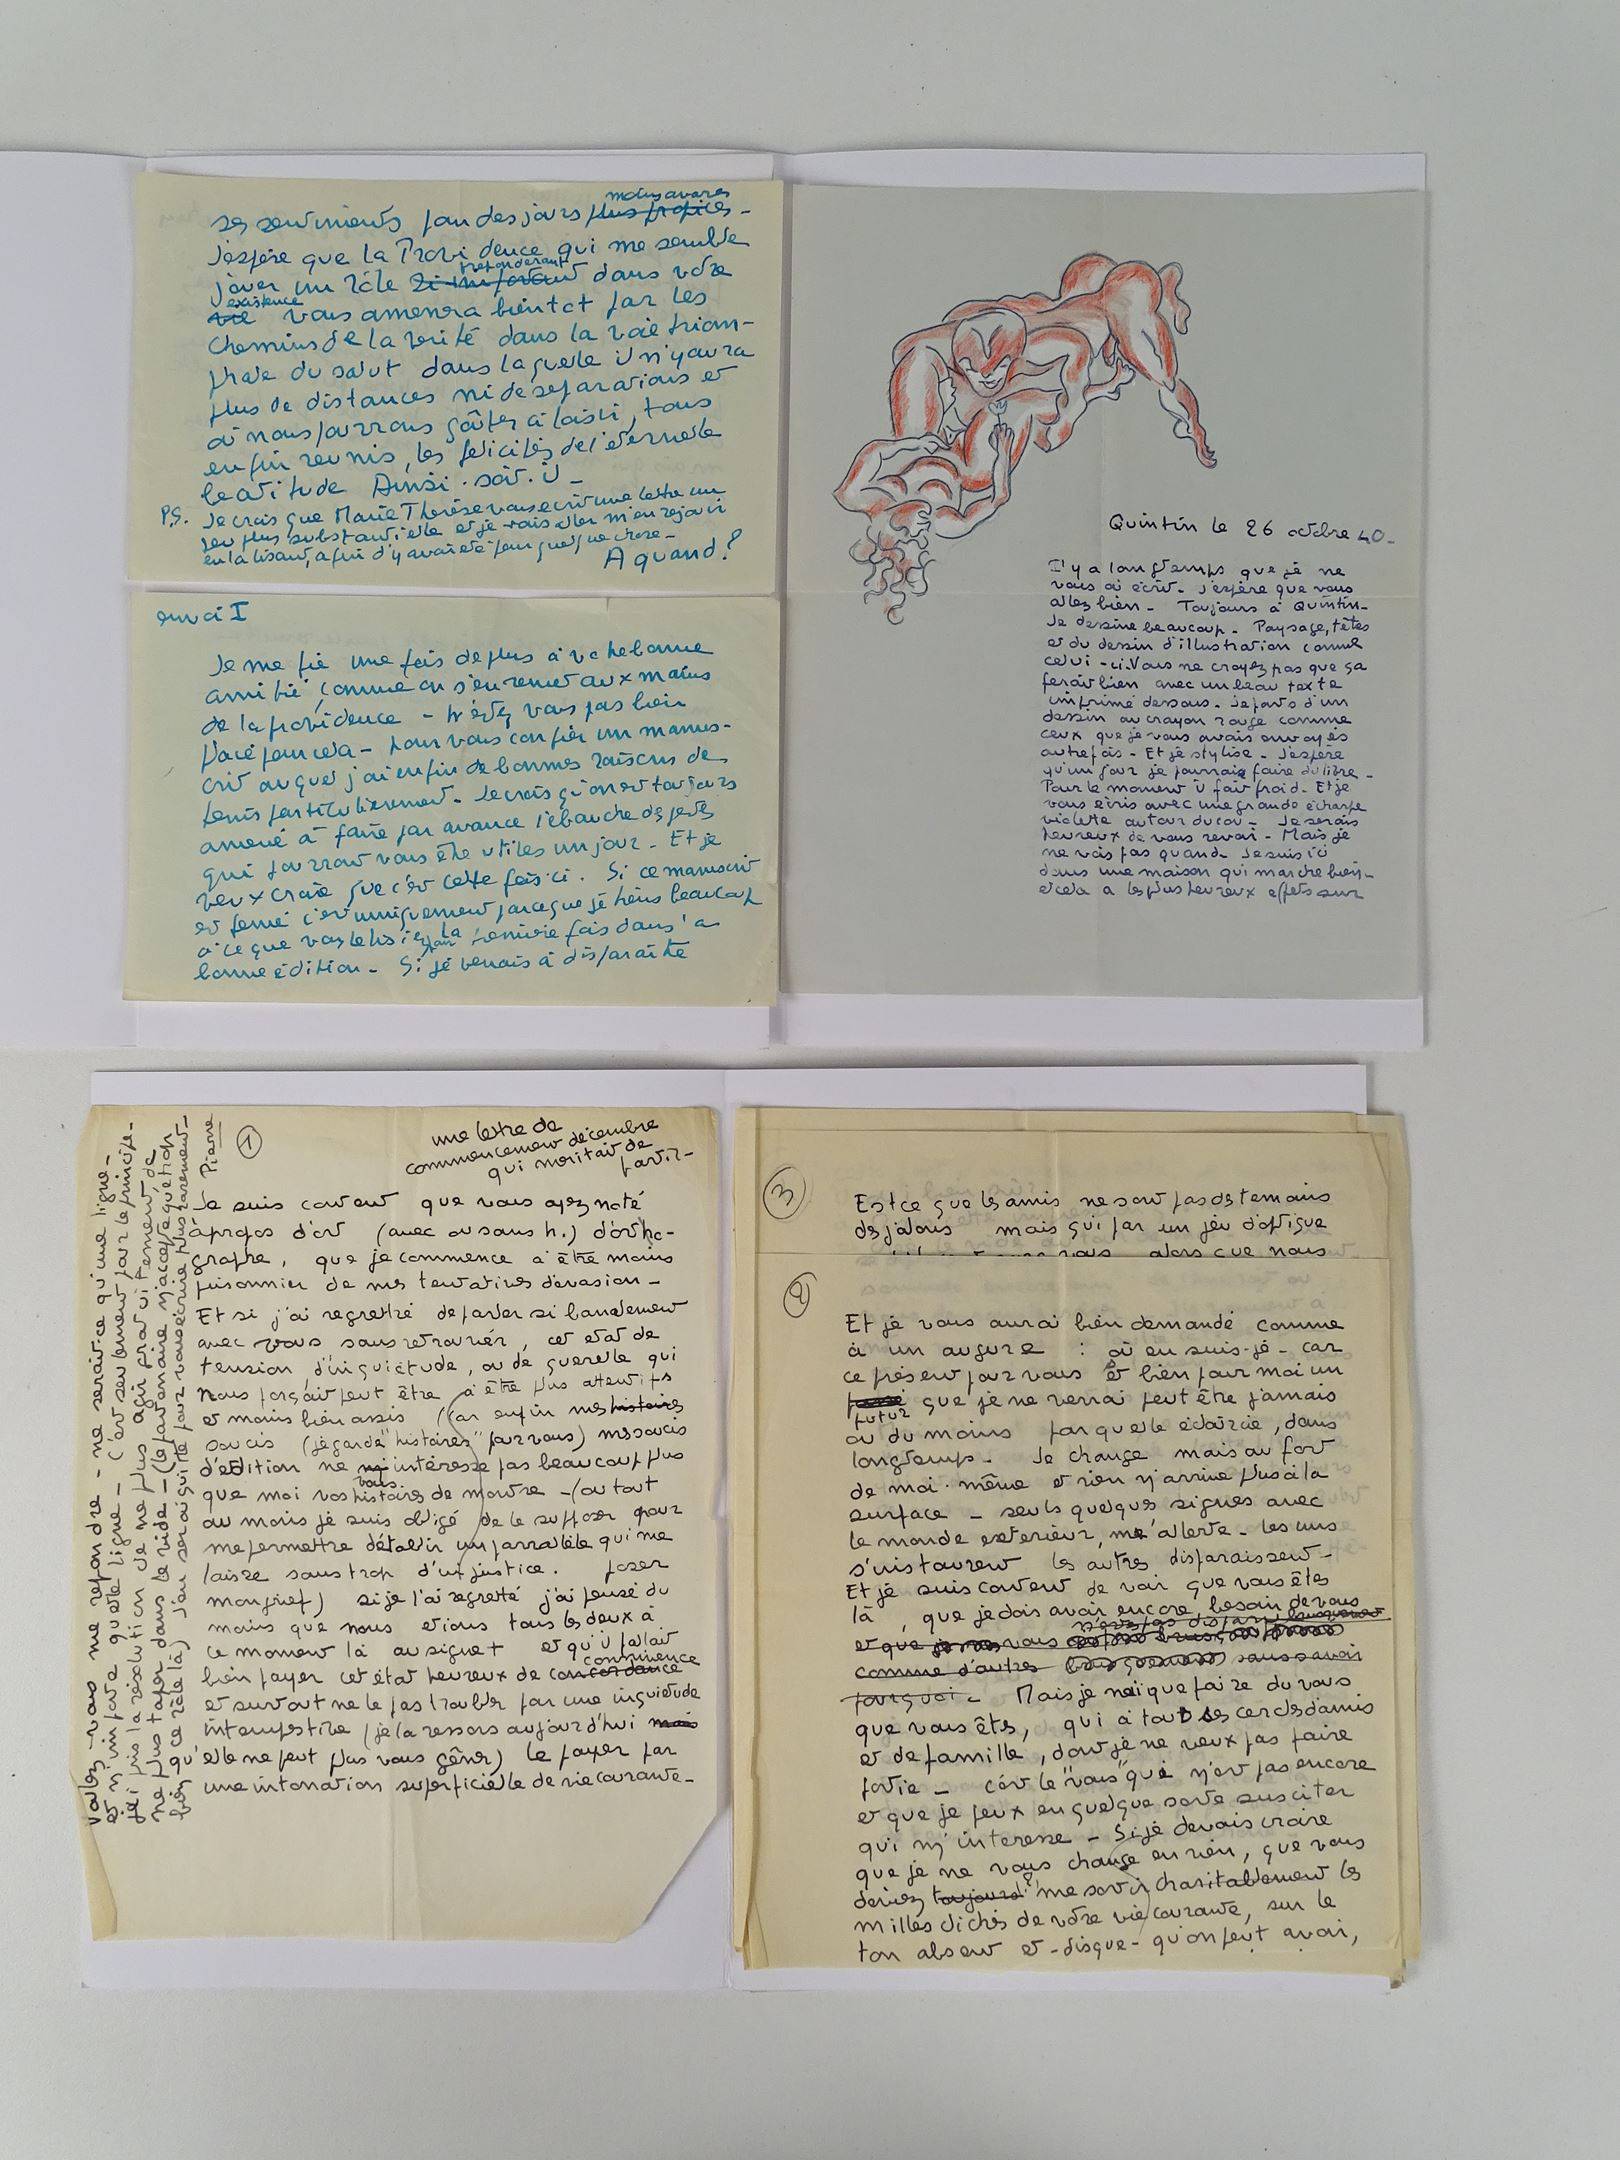 moins avares
ses sentiments pour des jours plus propices -
J'espère que la Providence qui me semble
préponderant
jouer un rôle si important dans votre
existence
vie vous amenera bientot par les
chemins de la verité dans la voie triom-
phale du salut dans laquelle il n'y aura
plus de distances ni de separations et
où nous pourrons goûter à loisir, tous
enfin reunis, les felicités de l'eternelle
beatitude Ainsi. soit. il -
P.S. Je crois que Marie Therèse vous ecrit une lettre un
peu plus substantielle et je vais aller m'en rejouir
en la lisant, afin d'y avoir eté pour quelque chose -
A quand?
envoi I
Je me fie une fois de plus à votre bonne
amitié, comme on s'en remet aux mains
de la providence - N'êtes vous pas bien
placé pour cela - pour vous confier un manus-
crit auquel j'ai enfin de bonnes raisons de
tenir particulierement - Je crois qu'on est toujours
amené à faire par avance l'ébauche de gestes
qui pourront vous être utiles un jour - Et je
veux croire que c'est cette fois-ci. Si ce manuscrit
est fermé c'est uniquement parceque je tiens beaucoup
à ce que vous le lisiez pour la première fois dans la
bonne édition - Si je venais à disparaître
Quintin le 26 octobre 40 -
I'y a longtemps que je ne
vous ai écrit - J'espère que vous
allez bien - Toujours à Quintin -
Je dessine beaucoup - Paysage, têtes
et du dessin d'illustration comme
celui-ci. Vous ne croyez pas que ça
ferait bien avec un beau texte
imprimé dessous. Je pars d'un
dessin au crayon rouge comme
ceux que je vous avais envoyés
autrefois - Et je stylise - J'espère
qu'un jour je pourrais faire du libre -
Pour le moment il fait froid. Et je
vous écris avec une grande écharpe
violette autour du cou - Je serais
heureux de vous revoir - Mais je
ne vois pas quand. Je suis ici
dans une maison qui marche bien -
et cela a les plus heureux effets sur
1
une lettre de
commencement décembre
qui meritait de
partir -
Je suis content que vous ayez noté
à propos d'ort (avec ou sans h.) d'ortho-
graphe, que je commence à être moins
prisonnier de mes tentatives d'evasion -
Et si j'ai regretté de parler si banalement
avec vous sans retrouver, cet etat de
tension d'inquiétude, ou de querelle qui
nous forçait peut être à être plus attentifs
et moins bien assis (car enfin mes histoires
soucis (je garde "histoires" pour vous) mes soucis
d'edition ne m'intéresse pas beaucoup plus
vous
que moi vos histoires de montre - (ou tout
au moins je suis obligé de le supposer pour
me permettre d'établir un parralèle qui me
laisse sans trop d'injustice. poser
mon grief) si je l'ai regretté j'ai pensé du
moins que nous etions tous les deux à
ce moment là au signet et qu'il fallait
commence
bien payer cet état heureux de concordance
et surtout ne le pas troubler par une inquietude
intempestive (je la ressors aujourd'hui mais
qu'elle ne peut plus vous gêner) le payer par
une intonation superficielle de vie courante -
Voulez-vous me repondre - ne serait-ce qu'une ligne -
et n'importe quelle ligne - C'est seulement pour le principe -
j'ai pris la résolution de ne plus agir gratuitement, de
ne plus taper dans le vide - (le partenaire n'accepte
bien ce rôle là) J'en serai quitte pour vous écrire plus rarement -
Pierre
3
Est ce que les amis ne sont pas des temoins
des jalons mais qui par un jeu d'optique
vous alors que nous
2
Et je vous aurai bien demandé comme
à un augure : où en suis-je - car
ce présent pour vous est bien pour moi un
passé
futur que je ne verrai peut être jamais
ou du moins par quelle éclaircie, dans
longtemps. Je change mais au fort
de moi-même et rien n'arrive plus à la
surface - seuls quelques signes avec
le monde exterieur, m'alerte - les uns
s'instaurent les autres disparaissent -
Et je suis content de voir que vous êtes
là, que je dois avoir encore besoin de vous
n'avez pas disparu brusquement
et que vous
comme d'autres brusquement sans savoir
pourquoi - Mais je n'ai que faire du vous
que vous êtes, qui a tout ses cercles d'amis
et de famille, dont je ne veux pas faire
partie - c'est le "vous" qui n'est pas encore
et que je peux en quelque sorte susciter
qui m'interesse - Si je devais croire
que je ne vous change en rien, que vous
deviez toujours me servir charitablement les
milles clichés de votre vie courante, sur le
ton absent et - disque - qu'on peut avoir,